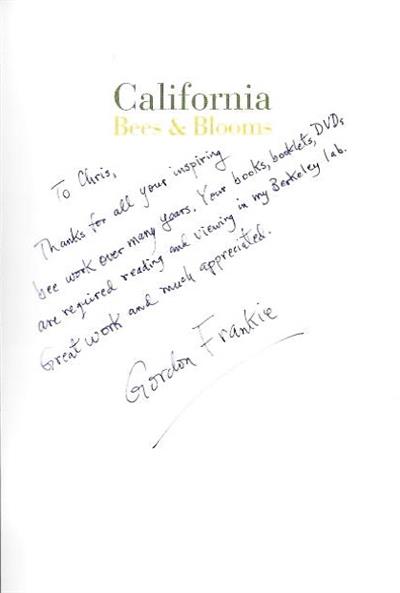 California
Bees & Blooms
To Chris,
Thanks for all your inspiring
bee work over many years. Your books, booklets, DVDs
are required reading and viewing in my Berkeley lab.
Great work and much appreciated.
Gordon Frankie